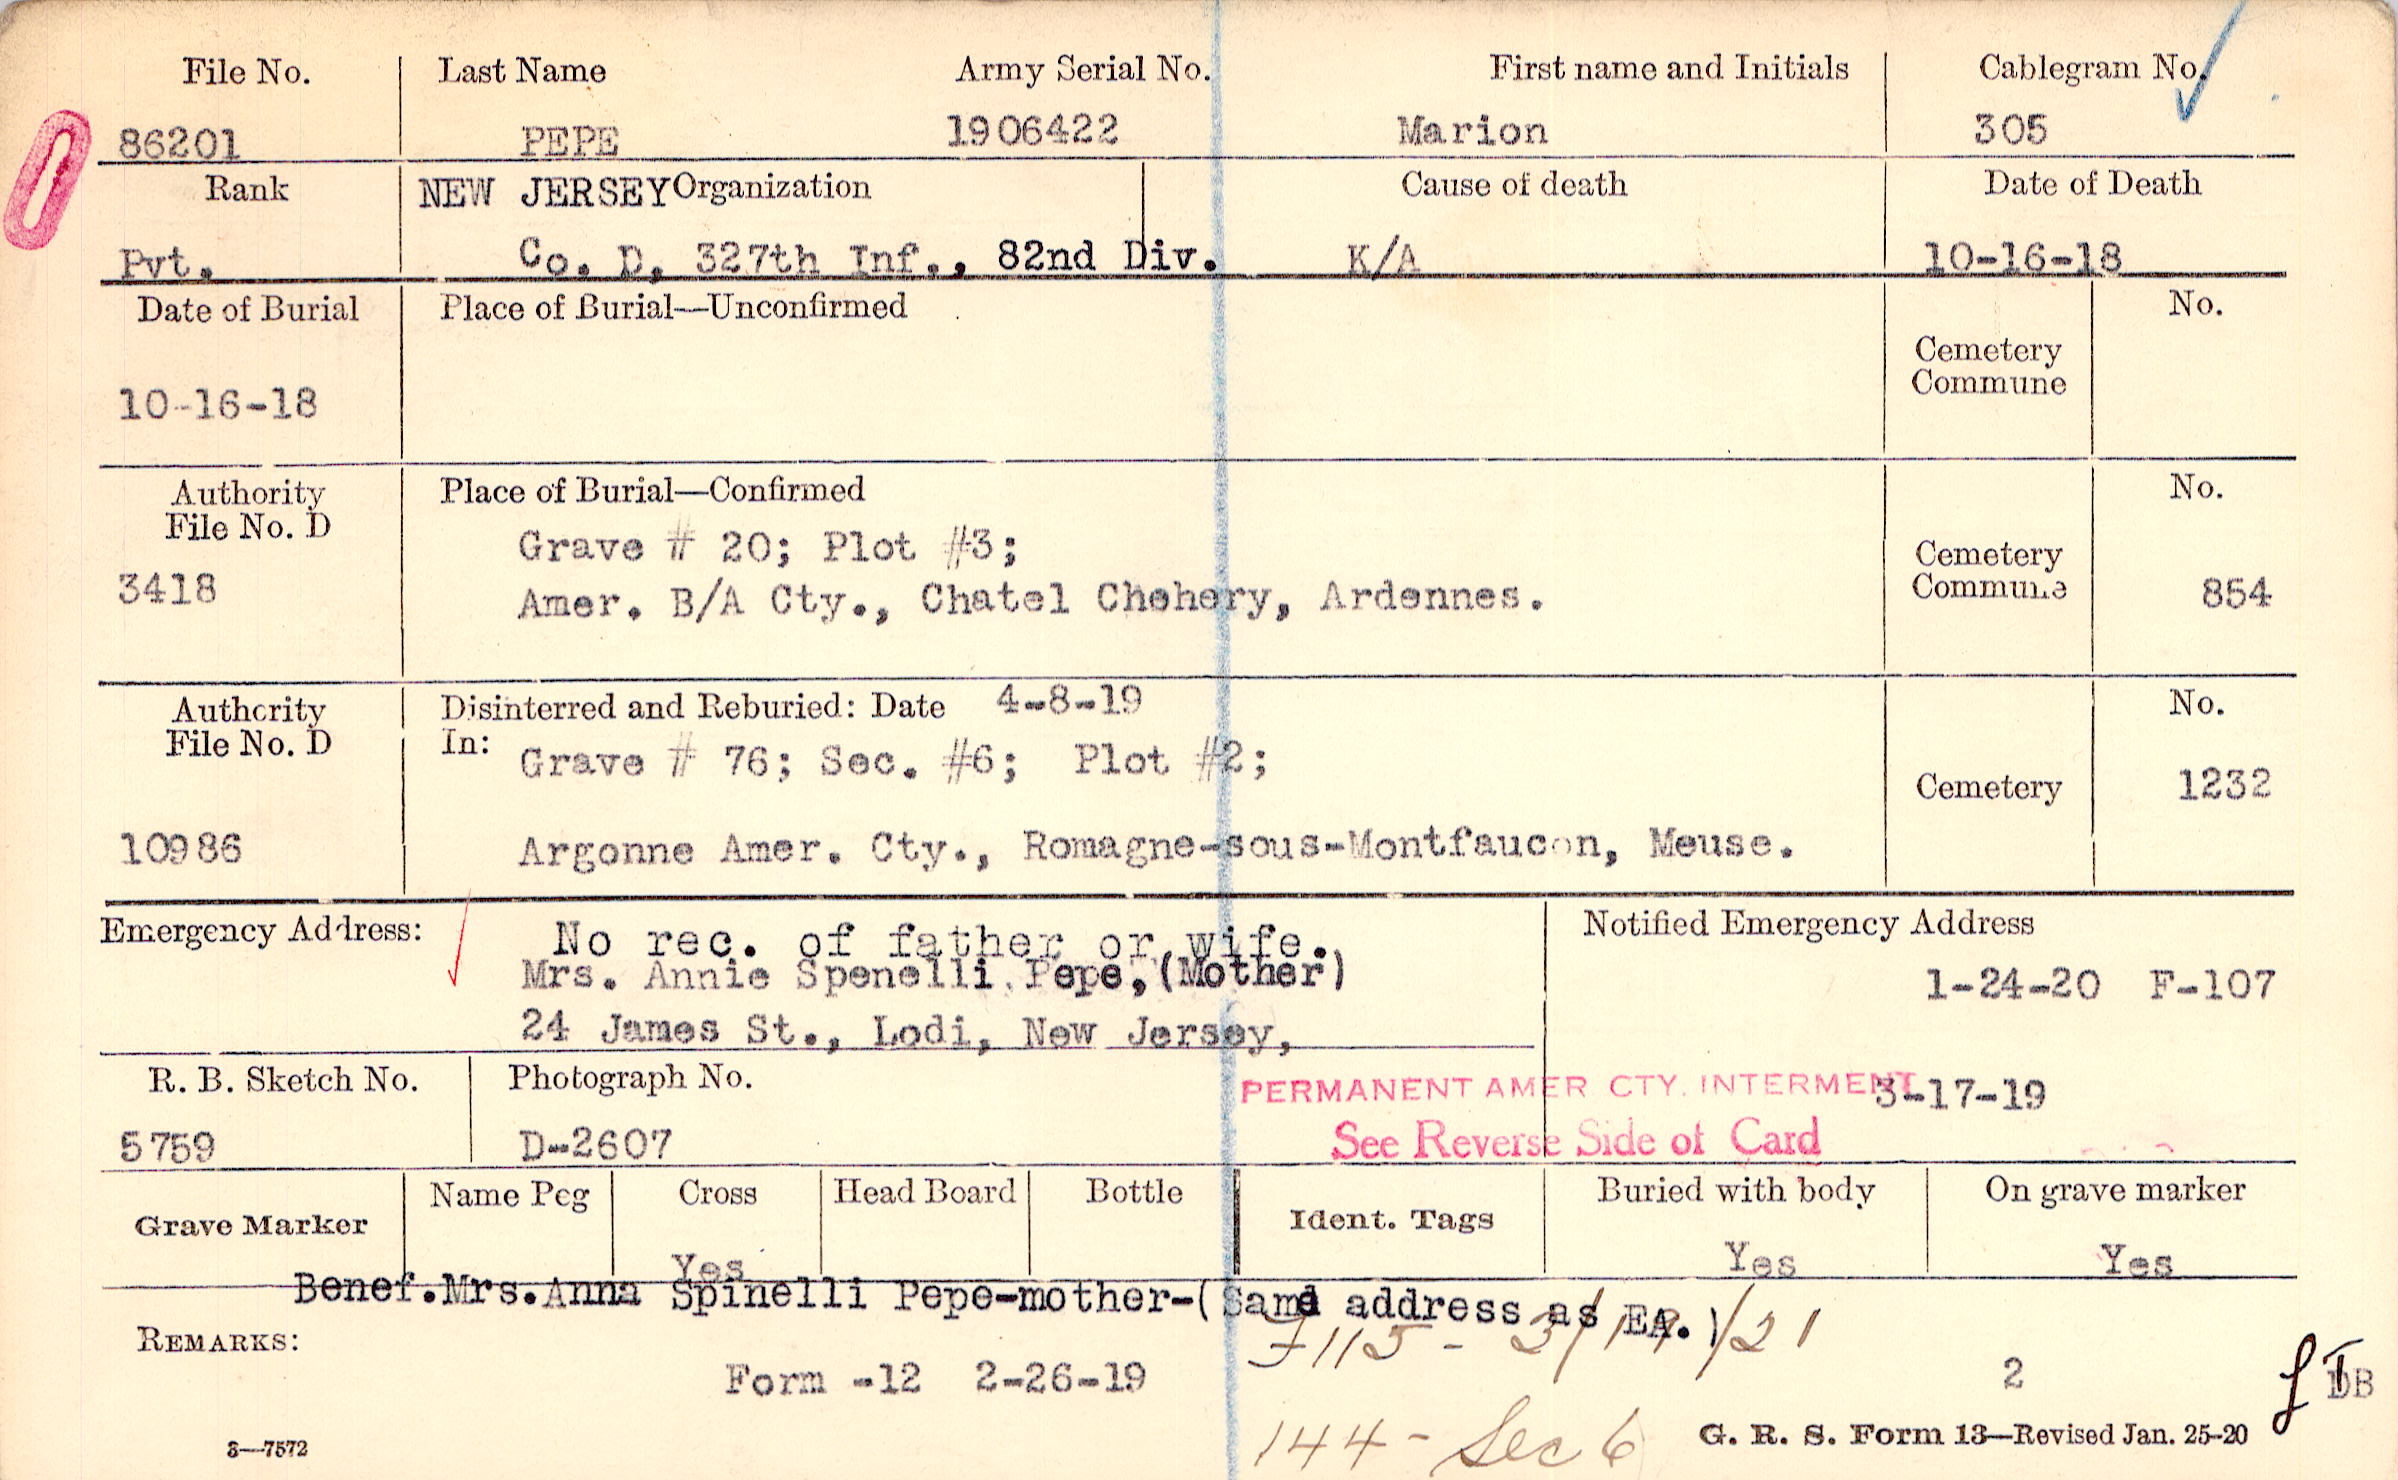 File No. Last Name Army Serial No. First name and Initials Cablegram No.
86201 PEPE 1906422 Marion 305
Rank NEW JERSEY Organization Cause of death Date of Death
Pvt. Co. D, 327th Inf., 82nd Div. K/A 10-16-18
Date of Burial Place of Burial—Unconfirmed No.
Cemetery
Commune
10-16-18
Authority Place of Burial—Confirmed No.
File No. D
Grave # 20; Plot #3;
Cemetery
3418 Amer. B/A Cty., Chatel Chehery, Ardennes. Commune 854
Authority Disinterred and Reburied: Date 4-8-19 No.
File No. D In: Grave # 76; Sec. #6; Plot #2;
Cemetery 1232
10986 Argonne Amer. Cty., Romagne-sous-Montfaucon, Meuse.
Emergency Address: No rec. of father or wife. Notified Emergency Address
Mrs. Annie Spenelli Pepe, (Mother) 1-24-20 F-107
24 James St., Lodi, New Jersey,
R. B. Sketch No. Photograph No. PERMANENT AMER CTY. INTERMENT 3-17-19
5759 D-2607 See Reverse Side of Card
Grave Marker Name Peg Cross Head Board Bottle Ident. Tags Buried with body On grave marker
Yes Yes Yes
Benef. Mrs. Anna Spinelli Pepe-mother-(Same address as EA.)
REMARKS: F115 - 3/19/21
Form -12 2-26-19 2
144 - Sec 6 G. R. S. Form 13—Revised Jan. 25-20
3—7572